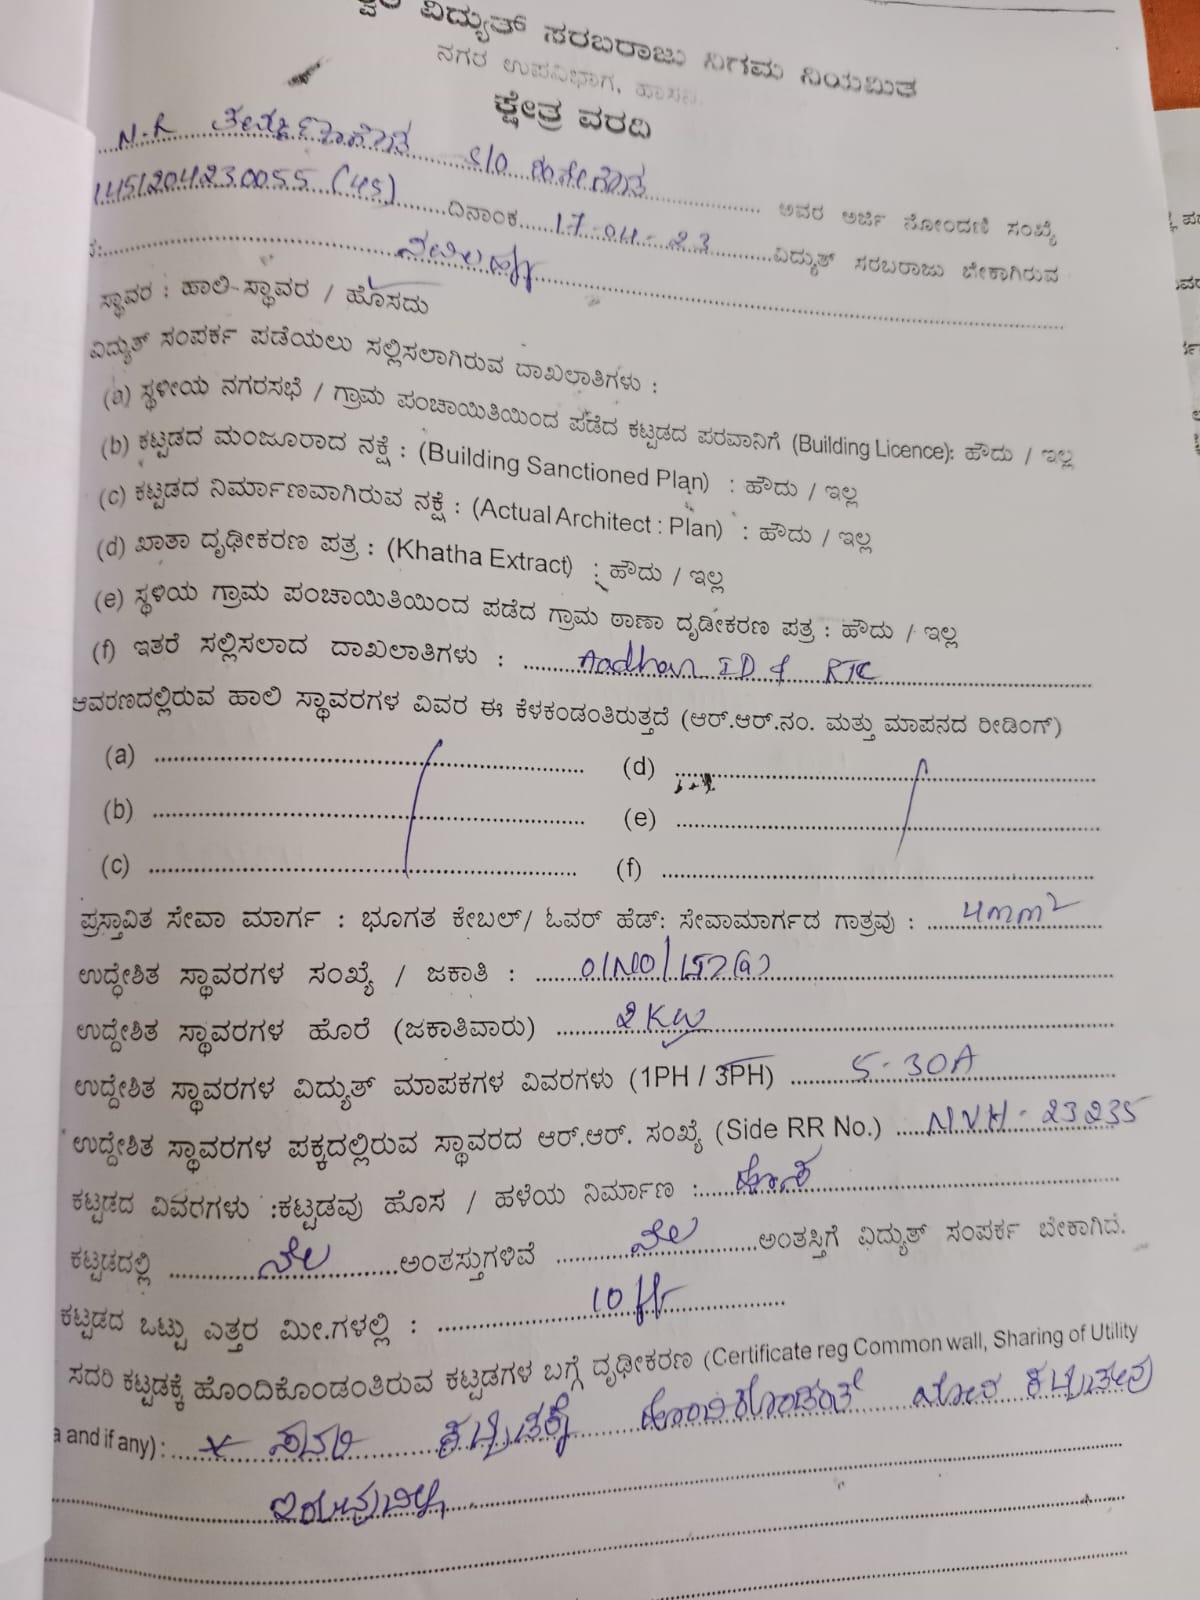 ವಿದ್ಯುತ್ ಸರಬರಾಜು ನಿಗಮ ನಿಯಮಿತ
ನಗರ ಉಪವಿಭಾಗ, ಹಾಸನ.
ಕ್ಷೇತ್ರ ವರದಿ
N.R S/O ಅವರ ಅರ್ಜಿ ನೋಂದಣಿ ಸಂಖ್ಯೆ
1451204230055 (45) ದಿನಾಂಕ 17-04-23 ವಿದ್ಯುತ್ ಸರಬರಾಜು ಬೇಕಾಗಿರುವ
ಸ್ಥಾವರ : ಹಾಲಿ-ಸ್ಥಾವರ / ಹೊಸದು
ವಿದ್ಯುತ್ ಸಂಪರ್ಕ ಪಡೆಯಲು ಸಲ್ಲಿಸಲಾಗಿರುವ ದಾಖಲಾತಿಗಳು :
(a) ಸ್ಥಳೀಯ ನಗರಸಭೆ / ಗ್ರಾಮ ಪಂಚಾಯಿತಿಯಿಂದ ಪಡೆದ ಕಟ್ಟಡದ ಪರವಾನಿಗೆ (Building Licence): ಹೌದು / ಇಲ್ಲ
(b) ಕಟ್ಟಡದ ಮಂಜೂರಾದ ನಕ್ಷೆ : (Building Sanctioned Plan) : ಹೌದು / ಇಲ್ಲ
(c) ಕಟ್ಟಡದ ನಿರ್ಮಾಣವಾಗಿರುವ ನಕ್ಷೆ : (Actual Architect : Plan) : ಹೌದು / ಇಲ್ಲ
(d) ಖಾತಾ ದೃಢೀಕರಣ ಪತ್ರ : (Khatha Extract) : ಹೌದು / ಇಲ್ಲ
(e) ಸ್ಥಳಿಯ ಗ್ರಾಮ ಪಂಚಾಯಿತಿಯಿಂದ ಪಡೆದ ಗ್ರಾಮ ಠಾಣಾ ದೃಡೀಕರಣ ಪತ್ರ : ಹೌದು / ಇಲ್ಲ
(f) ಇತರೆ ಸಲ್ಲಿಸಲಾದ ದಾಖಲಾತಿಗಳು : Aadhar ID & RTC
ಆವರಣದಲ್ಲಿರುವ ಹಾಲಿ ಸ್ಥಾವರಗಳ ವಿವರ ಈ ಕೆಳಕಂಡಂತಿರುತ್ತದೆ (ಆರ್.ಆರ್.ನಂ. ಮತ್ತು ಮಾಪನದ ರೀಡಿಂಗ್)
(a) (d)
(b) (e)
(c) (f)
ಪ್ರಸ್ತಾವಿತ ಸೇವಾ ಮಾರ್ಗ : ಭೂಗತ ಕೇಬಲ್/ ಓವರ್ ಹೆಡ್: ಸೇವಾಮಾರ್ಗದ ಗಾತ್ರವು : 4mm²
ಉದ್ಧೇಶಿತ ಸ್ಥಾವರಗಳ ಸಂಖ್ಯೆ / ಜಕಾತಿ : 01NO/
ಉದ್ದೇಶಿತ ಸ್ಥಾವರಗಳ ಹೊರೆ (ಜಕಾತಿವಾರು) 2KW
ಉದ್ದೇಶಿತ ಸ್ಥಾವರಗಳ ವಿದ್ಯುತ್ ಮಾಪಕಗಳ ವಿವರಗಳು (1PH / 3PH) 5-30A
ಉದ್ದೇಶಿತ ಸ್ಥಾವರಗಳ ಪಕ್ಕದಲ್ಲಿರುವ ಸ್ಥಾವರದ ಆರ್.ಆರ್. ಸಂಖ್ಯೆ (Side RR No.) NVH-23235
ಕಟ್ಟಡದ ವಿವರಗಳು :ಕಟ್ಟಡವು ಹೊಸ / ಹಳೆಯ ನಿರ್ಮಾಣ : ಹೊಸ
ಕಟ್ಟಡದಲ್ಲಿ ನೆಲ ಅಂತಸ್ತುಗಳಿವೆ ನೆಲ ಅಂತಸ್ತಿಗೆ ವಿದ್ಯುತ್ ಸಂಪರ್ಕ ಬೇಕಾಗಿದೆ.
ಕಟ್ಟಡದ ಒಟ್ಟು ಎತ್ತರ ಮೀ.ಗಳಲ್ಲಿ : 10ft
ಸದರಿ ಕಟ್ಟಡಕ್ಕೆ ಹೊಂದಿಕೊಂಡಂತಿರುವ ಕಟ್ಟಡಗಳ ಬಗ್ಗೆ ದೃಢೀಕರಣ (Certificate reg Common wall, Sharing of Utility
a and if any) : ಸದರಿ ಕಟ್ಟಡಕ್ಕೆ ಹೊಂದಿಕೊಂಡಂತೆ ಯಾವ ಕಟ್ಟಡವೂ
ಇರುವುದಿಲ್ಲ